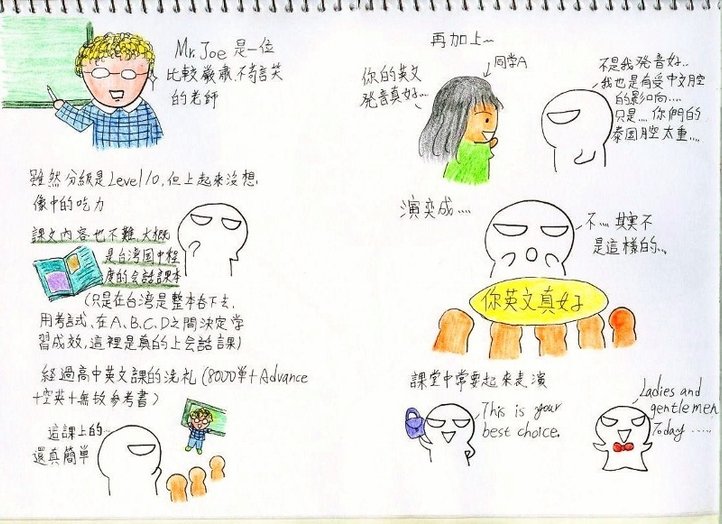 Mr. Joe 是一位
比較嚴肅.不苟言笑
的老師
雖然分級是Level 10,但上起來沒想
像中的吃力
課文內容也不難.大概
是台灣國中程
度的会話課本
(只是在台湾是整本吞下去.
用考試、在A、B、C、D之間決定学
習成效,這裡是真的上会話課)
經過高中英文課的洗礼(8000單+Advance
+空英+無敌参考書)
這課上的…
還真簡單
再加上~
同学A
你的英文
発音真好…
不是我発音好..
我也是有受中文腔
的影响….
只是…. 你們的
泰国腔太重….
演変成….
不…. 其実不
是這樣的…
你英文真好
課堂中常要起來表演
This is your
best choice.
Ladies and
gentlemen
Today ......